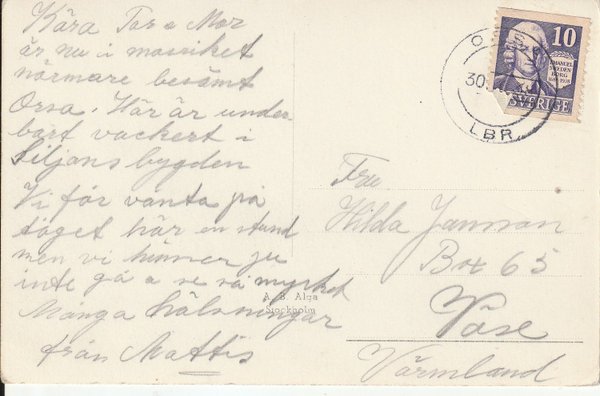 Kära Far o Mor
är nu i masriket
närmare besämt
Orsa. Här är under
bart vackert i
Siljans bygden
Vi får vänta på
tåget här en stund
men vi hinner ju
inte gå o se så mycket
Många hälsningar
från Mattis
A. B. Alga
Stockholm
10
EMANUEL
SWEDEN
BORG
SVERIGE
30
LBR
Fru
Hilda Jansson
Box 65
Väse
Värmland